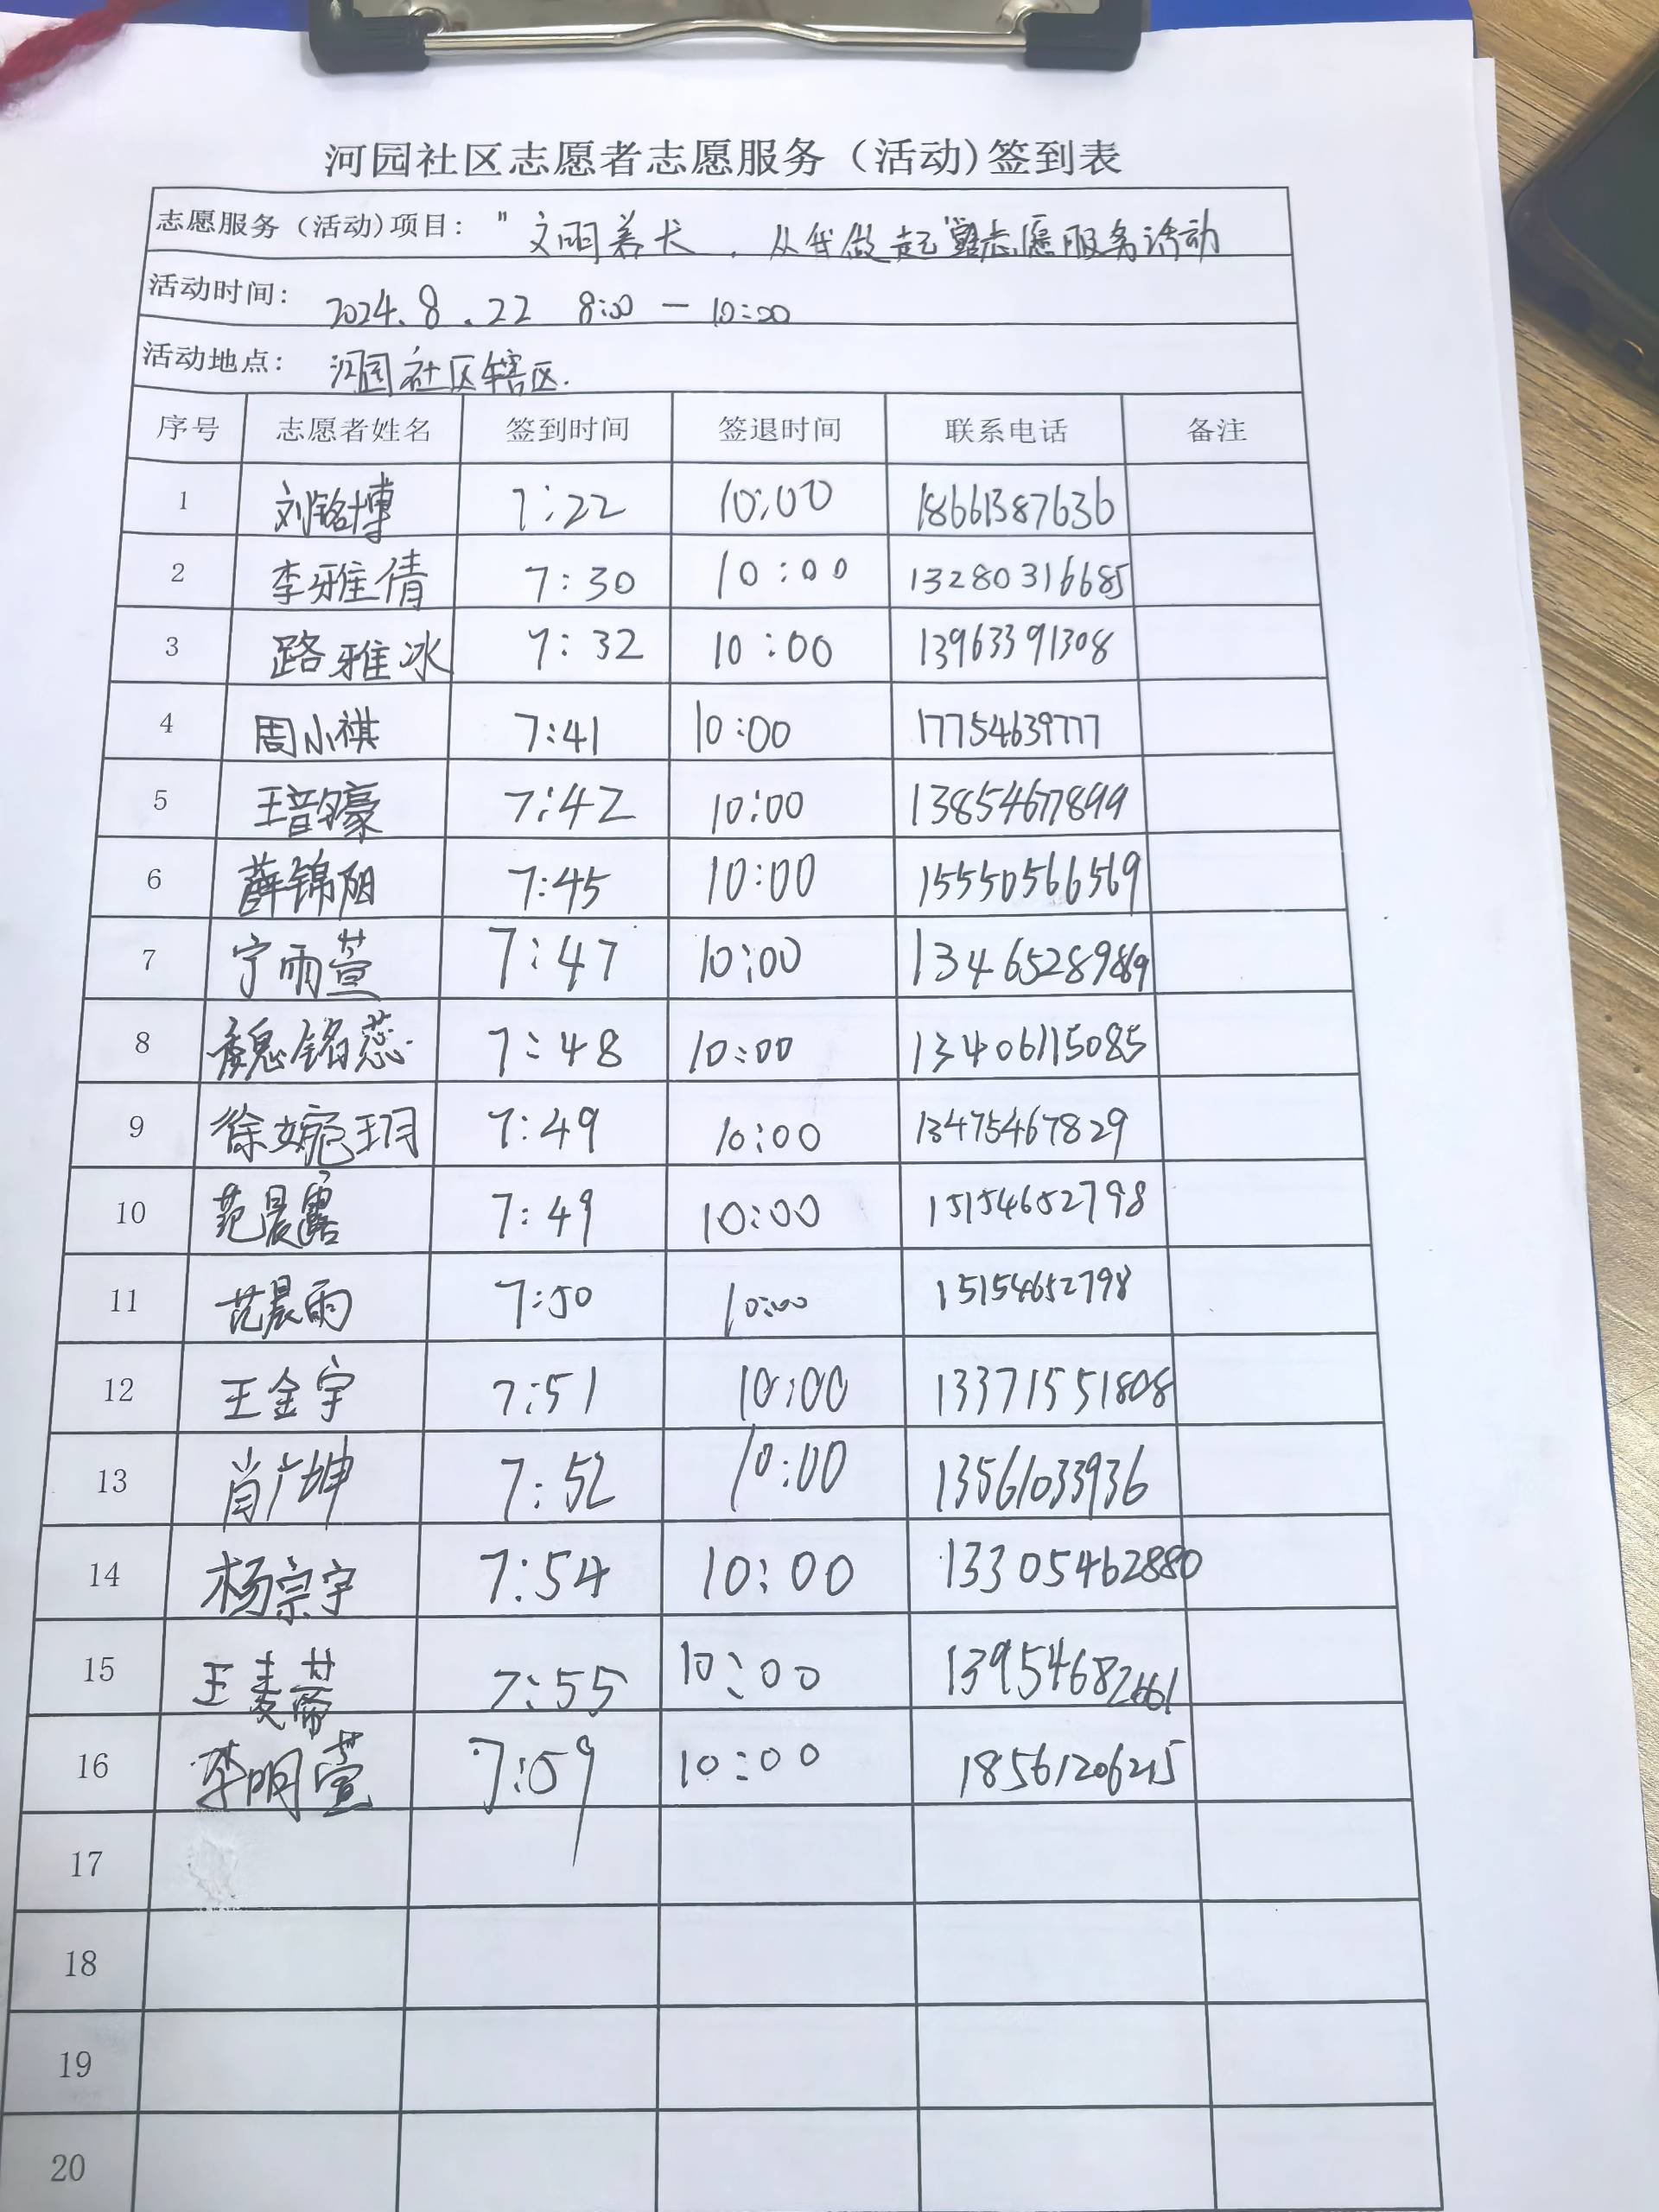 河园社区志愿者志愿服务（活动)签到表
志愿服务（活动)项目: "文明养犬，从我做起"志愿服务活动
活动时间: 2024.8.22 8:00—10:00
活动地点: 河园社区辖区.
序号 志愿者姓名 签到时间 签退时间 联系电话 备注
1 刘铭博 7:22 10:00 18661387636
2 李雅倩 7:30 10:00 13280316685
3 路雅冰 7:32 10:00 13963391308
4 周小祺 7:41 10:00 17754639777
5 王韵豪 7:42 10:00 13854677899
6 薛锦阳 7:45 10:00 15550566569
7 宁雨萱 7:47 10:00
8 魏铭蕊 7:48 10:00 13406115085
9 徐婉玥 7:49 10:00 13475467829
10 范晨露 7:49 10:00 15154652798
11 范晨雨 7:50 10:00 15154652798
12 王金宇 7:51 10:00 13371551808
13 肖广坤 7:52 10:00 13561033936
14 杨宗宇 7:54 10:00 13305462880
15 王麦蒂 7:55 10:00 13954682661
16 李明萱 7:59 10:00 18561206215
17
18
19
20